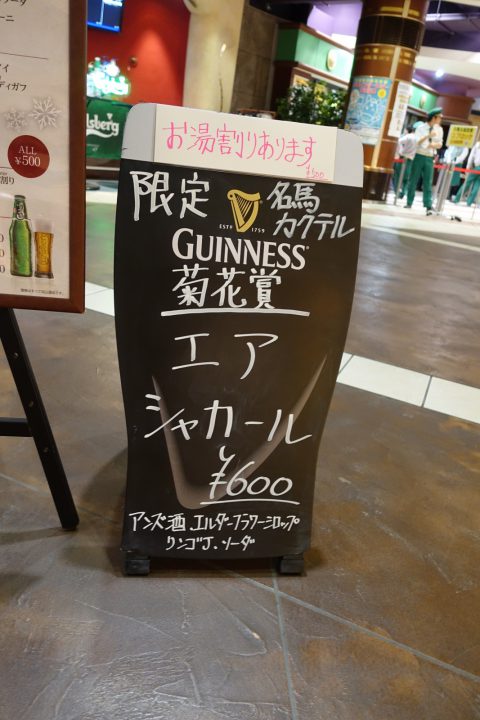 お湯割りあります
¥500
限定
名馬
カクテル
ESTD 1759
GUINNESS
菊花賞
エア
シャカール
¥600
アンズ酒、エルダーフラワーシロップ
リンゴJ、ソーダ
ALL
¥500
Carlsberg